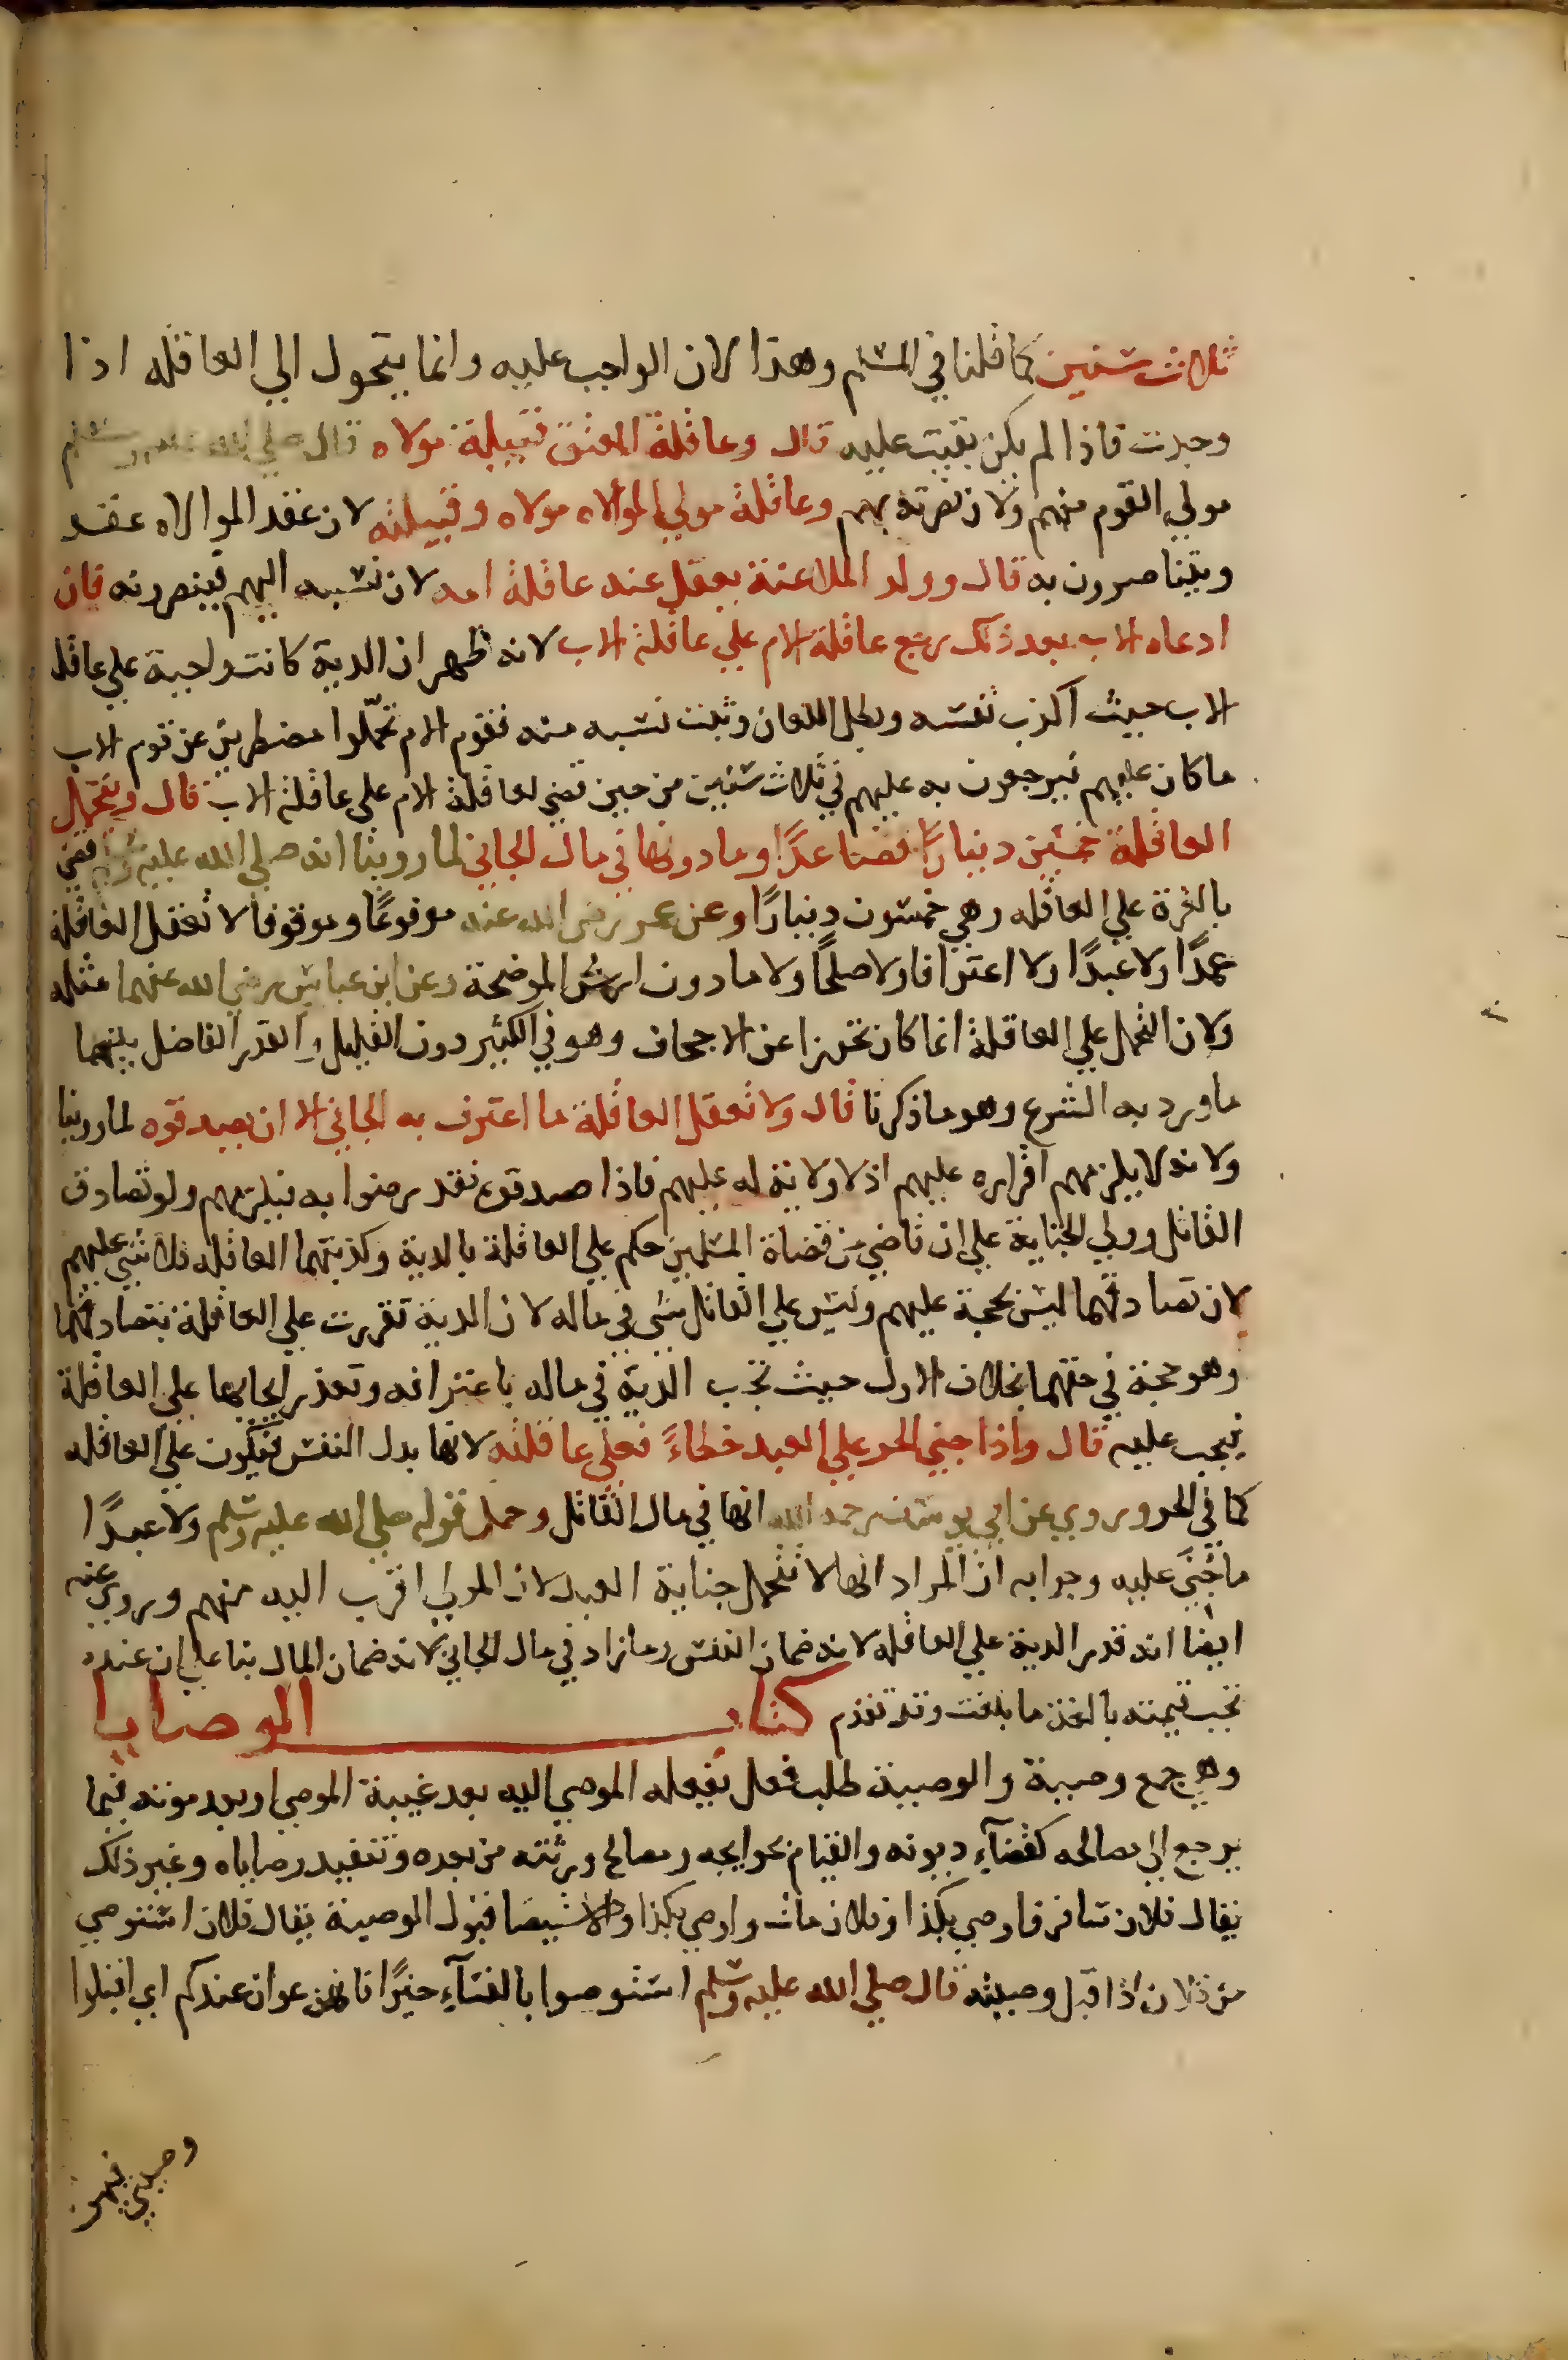 ثلاث سنين كما قلنا في المسلم وهذا لان الواجب عليه وانما يتحول الي العاقله اذا
وجدت فاذا لم يكن بقيت عليه قال وعاقلة المعتق قبيلة مولاه قال صلي الله عليه وسلم
مولي القوم منهم ولان نصرته بهم وعاقلة مولي الموالاه مولاه وقبيلته لان عقد الموالاه عقد
ويتناصرون به قال وولد الملاعنة يعقل عنه عاقلة امه لان نسبه اليهم فينصرونه فان
ادعاه الاب بعد ذلك رجع عاقلة الام علي عاقلة الاب لانه ظهر ان الدية كانت واجبة علي عاقلة
الاب حيث اكذب نفسه وبطل اللعان وثبت نسبه منه فقوم الام تحمّلوا مضطرين عن قوم الاب
ما كان عليهم فيرجعون به عليهم في ثلاث سنين من حين قضي لعاقلة الام علي عاقلة الاب قال ويتحمل
العاقلة خمسين دينارًا فصاعدًا وما دونها في مال الجاني لما روينا انه صلي الله عليه وسلم قضي
بالغرة علي العاقله وهي خمسون دينارًا وعن عمر رضي الله عنه مرفوعًا وموقوفا لا تعقل العاقلة
عمدًا ولا عبدًا ولا اعترافا ولا صلحًا ولا ما دون ارش الموضحة وعن ابن عباس رضي الله عنهما مثله
ولان التحمل علي العاقلة انما كان تحرزا عن الاجحاف وهو في الكثير دون القليل والقدر الفاصل بينهما
ما ورد به الشرع وهو ما ذكرنا قال ولا تعقل العاقلة ما اعترف به الجاني الا ان يصدقوه لما روينا
ولانه لا يلزمهم اقراره عليهم اذ لا ولاية له عليهم فاذا صدقوه فقد رضوا به فيلزمهم ولو تصادق
القاتل وولي الجناية علي ان قاضي من قضاة المسلمين حكم علي العاقلة بالدية وكذبتهما العاقله فلا شي عليهم
لان تصادقهما ليس بحجة عليهم وليس علي القاتل شي في ماله لان الدية تقررت علي العاقلة بتصادقهما
وهو حجة في حقهما بخلاف الاول حيث تجب الدية في ماله باعترافه وتعذر ايجابها علي العاقلة
فيجب عليه قال واذا جني الحر علي العبد خطاءً فعلي عاقلته لانها بدل النفس فيكون علي العاقله
كما في الحر وروي عن ابي يوسف رحمه الله انها في مال القاتل وحمل قوله صلي الله عليه وسلم ولا عبدًا
ما جُنِيَ عليه وجوابه ان المراد انها لا تتحمل جناية العبد لان المولي اقرب اليه منهم وروي عنه
ايضا انه قدر الدية علي العاقله لانه ضمان النفس وما زاد في مال الجاني لانه ضمان المال بنا علي ان عنده
تجب قيمته بالغة ما بلغت وقد تقدم كتاب الوصايا
وهي جمع وصية والوصية طلب فعل يفعله الموصي اليه بعد غيبة الموصي او بعد موته فيما
يرجع الي مصالحه كقضآء ديونه والقيام بحوايجه ومصالح ورثته من بعده وتنفيد وصاياه وغير ذلك
يقال فلان سافر فاوصي بكذا وفلان مات واوصي بكذا والاستيصا قبول الوصية يقال فلان استوصي
من فلان اذا قبل وصيته قال صلي الله عليه وسلم استوصوا بالنسآء خيرًا فانهن عوان عندكم اي اقبلوا
وصيتي فيهن